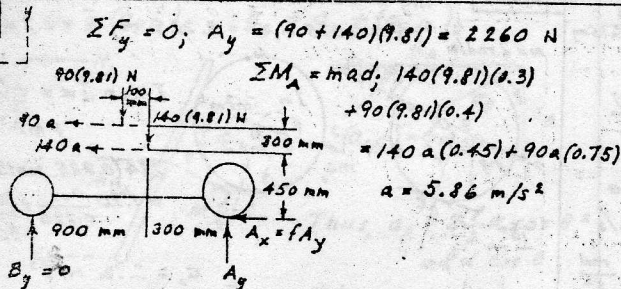 y
ΣF_y = 0; A_y = (90+140)(9.81) = 2260 N
ΣM_A = mad; 140(9.81)(0.3)
+90(9.81)(0.4)
= 140a(0.45)+90a(0.75)
a = 5.86 m/s²
90(9.81) N
100
mm
140(9.81) N
90a
140a
300 mm
450 mm
900 mm
300 mm
A_x = fA_y
B_y = 0
A_y